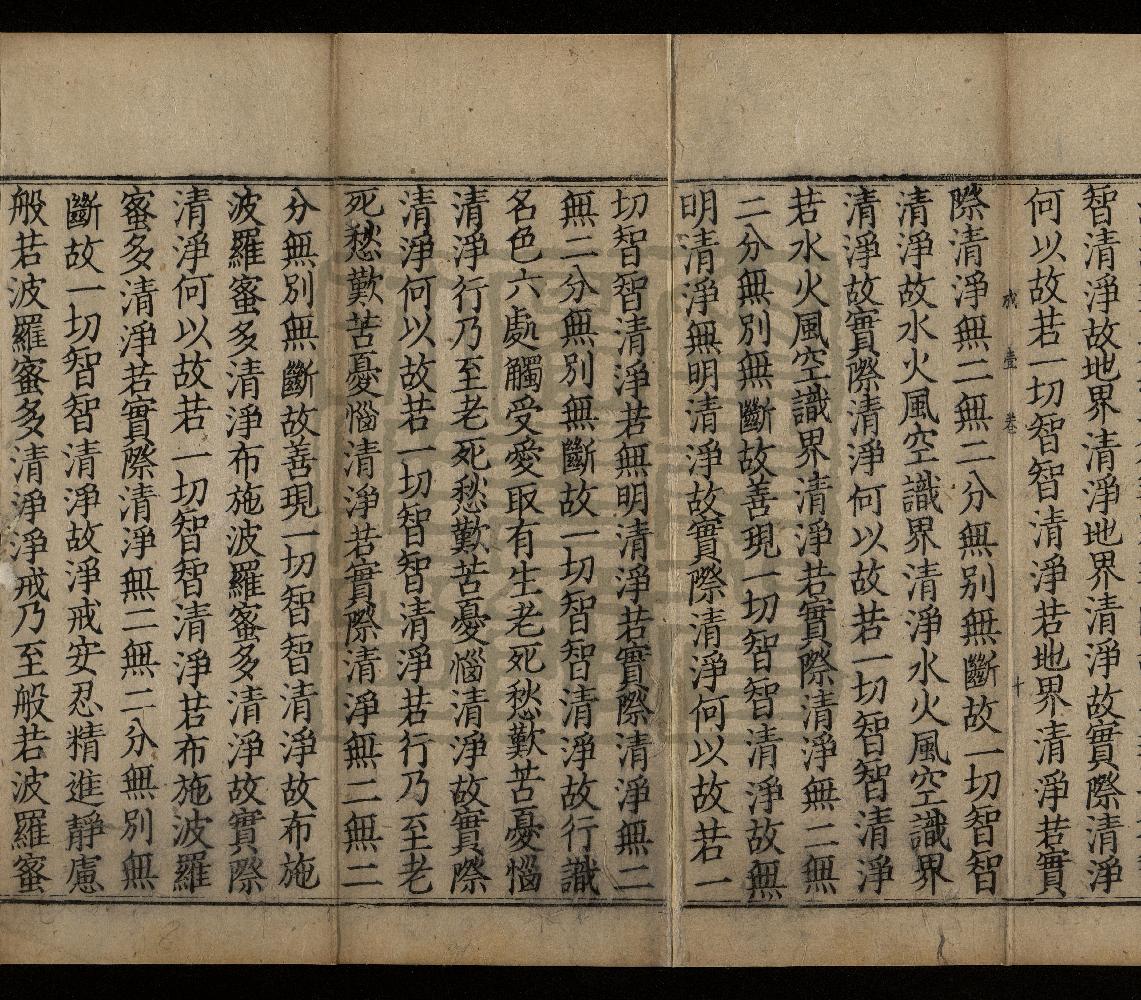 智清淨故地界清淨地界清淨故實際清淨
何以故若一切智智清淨若地界清淨若實
際清淨無二無二分無別無斷故一切智智
清淨故水火風空識界清淨水火風空識界
清淨故實際清淨何以故若一切智智清淨
若水火風空識界清淨若實際清淨無二無
二分無別無斷故善現一切智智清淨故無
明清淨無明清淨故實際清淨何以故若一
切智智清淨若無明清淨若實際清淨無二
無二分無別無斷故一切智智清淨故行識
名色六處觸受愛取有生老死愁歎苦憂惱
清淨行乃至老死愁歎苦憂惱清淨故實際
清淨何以故若一切智智清淨若行乃至老
死愁歎苦憂惱清淨若實際清淨無二無二
分無別無斷故善現一切智智清淨故布施
波羅蜜多清淨布施波羅蜜多清淨故實際
清淨何以故若一切智智清淨若布施波羅
蜜多清淨若實際清淨無二無二分無別無
斷故一切智智清淨故淨戒安忍精進靜慮
般若波羅蜜多清淨淨戒乃至般若波羅蜜